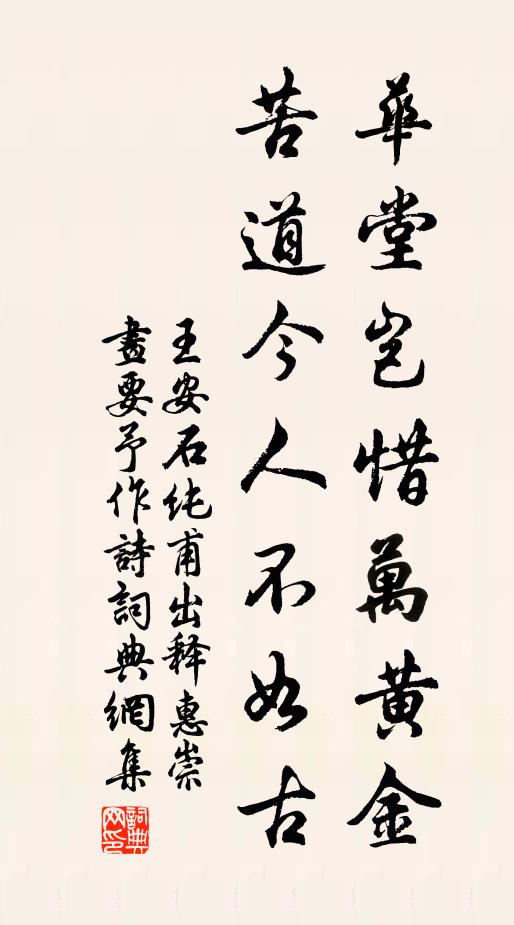 華堂豈惜萬黃金
苦道今人不如古
王安石纯甫出释惠崇
畫要予作詩詞典網集
詞典
网印